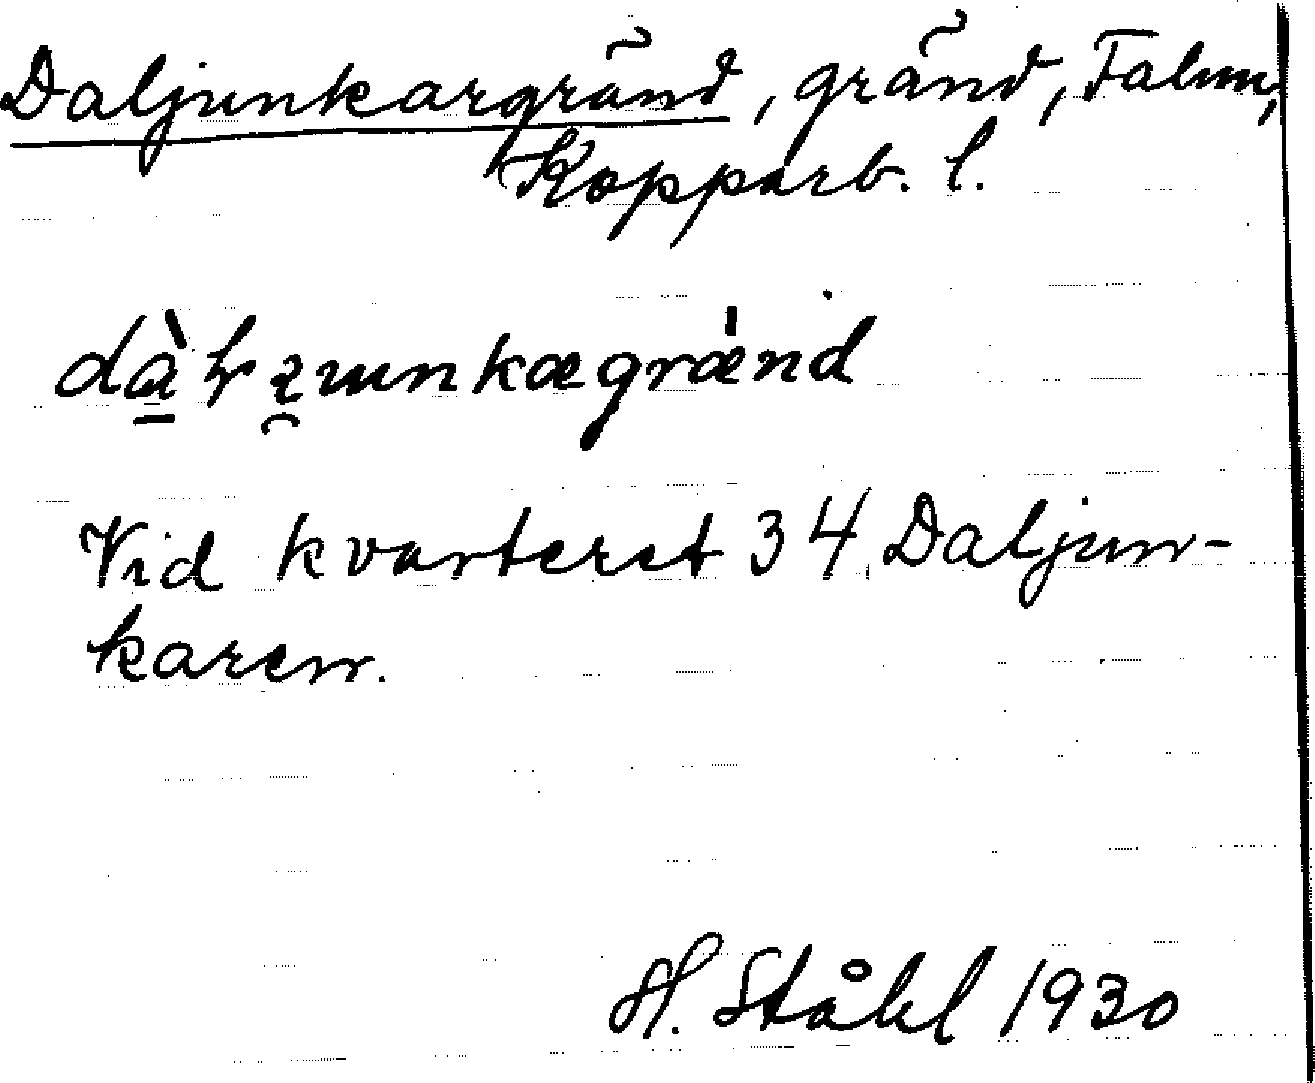 Daljunkargränd, gränd, Falun,
Kopparb. l.
Vid kvarteret 34 Daljun-
karen.
H. Ståhl 1930